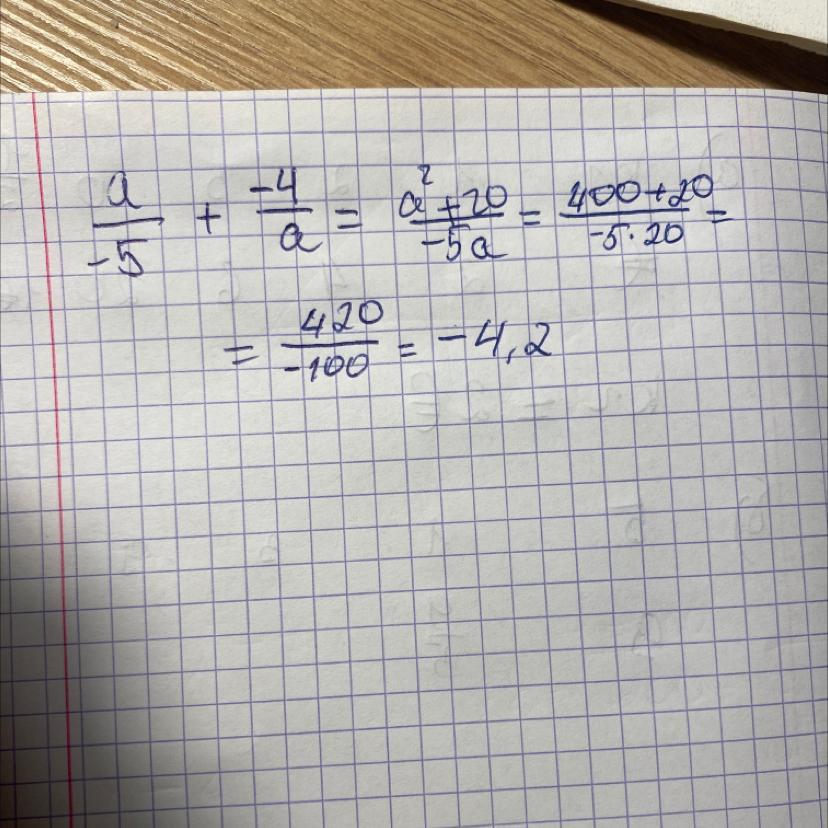 a/-5 + -4/a = a²+20/-5a = 400+20/-5·20 =
= 420/-100 = -4,2